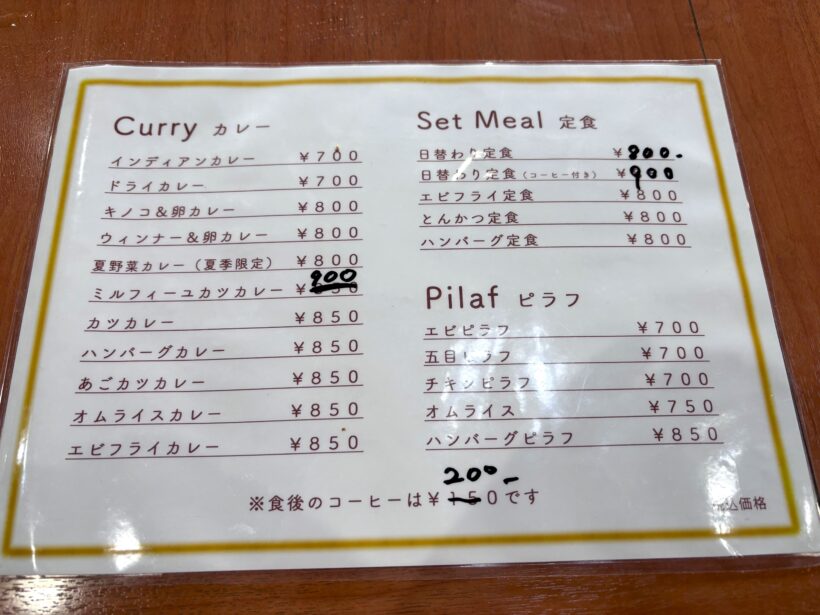 Curry カレー
インディアンカレー ¥700
ドライカレー ¥700
キノコ&卵カレー ¥800
ウィンナー&卵カレー ¥800
夏野菜カレー(夏季限定) ¥800
900
ミルフィーユカツカレー ¥850
カツカレー ¥850
ハンバーグカレー ¥850
あごカツカレー ¥850
オムライスカレー ¥850
エビフライカレー ¥850
Set Meal 定食
日替わり定食 ¥800-
日替わり定食(コーヒー付き) ¥900
エビフライ定食 ¥800
とんかつ定食 ¥800
ハンバーグ定食 ¥800
Pilaf ピラフ
エビピラフ ¥700
五目ピラフ ¥700
チキンピラフ ¥700
オムライス ¥750
ハンバーグピラフ ¥850
200-
※食後のコーヒーは¥150です
税込価格